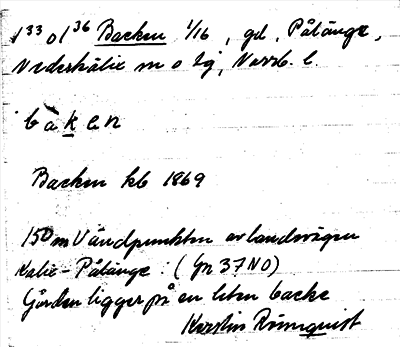 1³³ o 1³⁶ Backen 1/16, gd, Påläng,
Nederkalix sn o tg, Norrb. l.
bàken
Backen kb 1869
150 m V ändpunkten av landsvägen
Kalix - Påläng: (Gr 37 NO)
Gården ligger på en liten backe
Kerstin Rönnquist